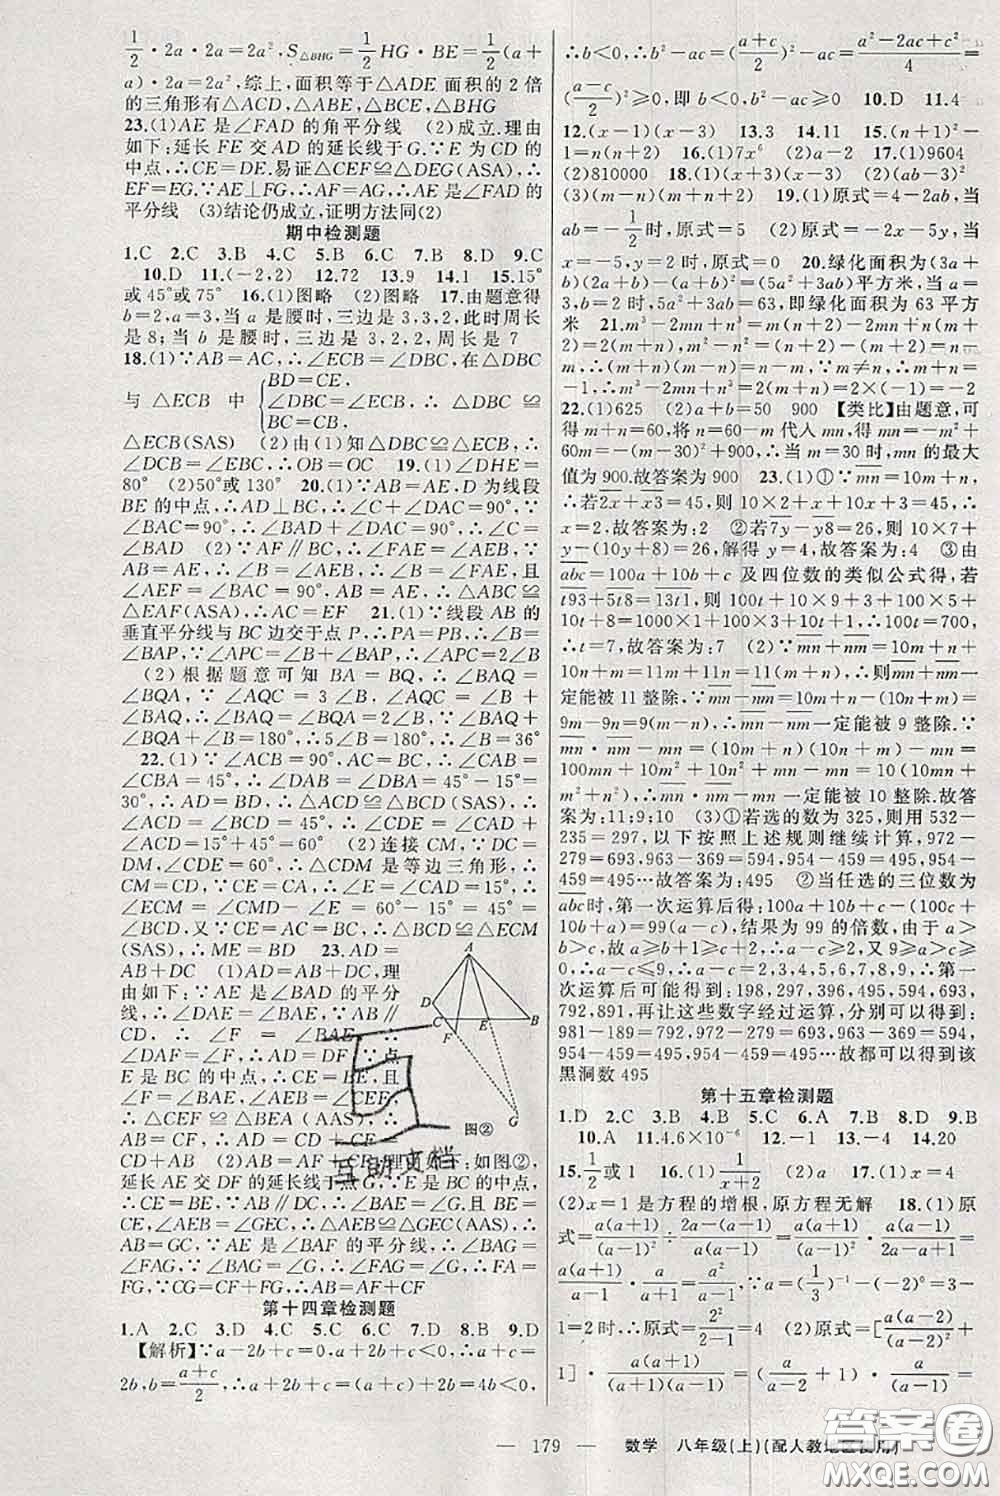 1/2·2a·2a=2a²,S△BHG=1/2HG·BE=1/2(a+
a)·2a=2a²,综上,面积等于△ADE 面积的 2 倍
的三角形有△ACD,△ABE,△BCE,△BHG
23.(1)AE 是∠FAD 的角平分线 (2)成立.理由
如下:延长 FE 交 AD 的延长线于 G.∵E 为 CD 的
中点,∴CE=DE.易证△CEF≌△DEG(ASA),∴
EF=EG.∵AE⊥FG,∴AF=AG,∴AE 是∠FAD 的
平分线 (3)结论仍成立,证明方法同(2)
期中检测题
1.C 2.C 3.B 4.C 5.B 6.C 7.B 8.D 9.C
10.D 11.(-2,2) 12.72 13.9 14.1 15.15°
或 45°或 75° 16.(1)图略 (2)图略 17.由题意得
b=2,a=3,当 a 是腰时,三边是 3,3,2,此时周长
是 8;当 b 是腰时,三边是 3,2,2,周长是 7
18.(1)∵AB=AC,∴∠ECB=∠DBC,在△DBC
与△ECB 中 {BD=CE, ∠DBC=∠ECB, BC=CB ∴△DBC≌
△ECB(SAS) (2)由(1)知△DBC≌△ECB,∴
∠DCB=∠EBC,∴OB=OC 19.(1)∠DHE=
80° (2)50°或 130° 20.(1)∵AB=AE,D 为线段
BE 的中点,∴AD⊥BC,∴∠C+∠DAC=90°,∵
∠BAC=90°,∴∠BAD+∠DAC=90°,∴∠C=
∠BAD (2)∵AF∥BC,∴∠FAE=∠AEB,∵
AB=AE,∴∠B=∠AEB,∴∠B=∠FAE,且
∠AEF=∠BAC=90°,AB=AE,∴△ABC≌
△EAF(ASA),∴AC=EF 21.(1)∵线段 AB 的
垂直平分线与 BC 边交于点 P,∴PA=PB,∴∠B=
∠BAP,∵∠APC=∠B+∠BAP,∴∠APC=2∠B
(2)根据题意可知 BA=BQ,∴∠BAQ=
∠BQA,∵∠AQC=3∠B,∠AQC=∠B+
∠BAQ,∴∠BAQ=∠BQA=2∠B,∵∠BAQ+
∠BQA+∠B=180°,∴5∠B=180°,∴∠B=36°
22.(1)∵∠ACB=90°,AC=BC,∴∠CAB=
∠CBA=45°,∴∠DAB=∠DBA=45°-15°=
30°,∴AD=BD,∴△ACD≌△BCD(SAS),∴
∠ACD=∠BCD=45°,∴∠CDE=∠CAD+
∠ACD=15°+45°=60° (2)连接 CM,∵DC=
DM,∠CDE=60°,∴△CDM 是等边三角形,∴
CM=CD,∵CE=CA,∴∠E=∠CAD=15°,∴
∠ECM=∠CMD-∠E=60°-15°=45°=
∠BCD,∵CE=AC=BC,∴△BCD≌△ECM
(SAS),∴ME=BD 23.AD=
AB+DC (1)AD=AB+DC,理
由如下:∵AE 是∠BAD 的平分
线,∴∠DAE=∠BAE,∵AB∥
CD,∴∠F=∠BAE,∴
∠DAF=∠F,∴AD=DF,∵点
E 是 BC 的中点,∴CE=BE,且
∠F=∠BAE,∠AEB=∠CEF,
∴△CEF≌△BEA(AAS),∴
AB=CF,∴AD=CD+CF=
CD+AB 理由如下:如图②,
延长 AE 交 DF 的延长线于点 G.∵E 是 BC 的中点,
∴CE=BE,∵AB∥DC,∴∠BAE=∠G.且
BE=CE,∠AEB=∠GEC,∴△AEB≌△GEC(AAS),∴
AB=GC,∵AE 是∠BAF 的平分线,∴∠BAG=
∠FAG,∵∠BAG=∠G,∴∠FAG=∠G,∴FA=
FG,∵CG=CF+FG,∴AB=AF+CF
A D C F E B G 图②
第十四章检测题
1.A 2.C 3.D 4.C 5.C 6.C 7.D 8.B 9.D
【解析】∵a-2b+c=0,a+2b+c<0,∴a+c=
2b,b=(a+c)/2,∴a+2b+c=(a+c)+2b=4b<0,
∴b<0,∴b²-ac=((a+c)/2)²-ac=(a²-2ac+c²)/4=
((a-c)/2)²≥0,即 b<0,b²-ac≥0 10.D 11.4
12.(x-1)(x-3) 13.3 14.11 15.(n+1)²-
1=n(n+2) 16.(1)7x⁶ (2)a-2 17.(1)9604
(2)810000 18.(1)(x+3)(x-3) (2)(ab-3)²
(3)(m-n)(m+2)(m-2) 19.(1)原式=4-2ab,当
ab=-1/2时,原式=5 (2)原式=-2x-5y,当
x=-5,y=2 时,原式=0 20.绿化面积为(3a+
b)(2a+b)-(a+b)²=(5a²+3ab)平方米,当 a=
3,b=2 时,5a²+3ab=63,即绿化面积为 63 平方
米 21.m³-2mn+n³=m(n+2)-2mn+n(m+
2)=2(m+n),m²-n²=(n+2)-(m+2)=n-
m,∴(m+n)(m-n)=n-m,∵m≠n,∴m+n=
-1,∴m³-2mn+n³=2(m+n)=2×(-1)=-2
22.(1)625 (2)a+b=50 900 【类比】由题意,可
得 m+n=60,将 n=60-m 代入 mn,得 mn=-m²+
60m=-(m-30)²+900,∴当 m=30 时,mn 的最大
值为 900.故答案为 900 23.(1)①∵mn=10m+n,
∴若2x+x3=45,则 10×2+x+10x+3=45,∴
x=2,故答案为:2 ②若7y-y8=26,则 10×7+
y-(10y+8)=26,解得 y=4,故答案为:4 ③由
abc=100a+10b+c 及四位数的类似公式得,若
t93+5t8=13t1,则 100t+10×9+3+100×5+
10t+8=1000×1+100×3+10t+1,∴100t=700,
∴t=7,故答案为:7 (2)∵mn+nm=10m+n+
10n+m=11m+11n=11(m+n),∴则mn+nm一
定能被 11 整除.∵mn-nm=10m+n-(10n+m)=
9m-9n=9(m-n),∴mn-nm一定能被 9 整除.∵
mn·nm-mn=(10m+n)(10n+m)-mn=
100mn+10m²+10n²+mn-mn=10(10mn+
m²+n²),∴mn·nm-mn一定能被 10 整除.故答
案为:11;9;10 (3)①若选的数为 325,则用 532-
235=297,以下按照上述规则继续计算,972-
279=693,963-369=594,954-459=495,954-
459=495…故答案为:495 ②当任选的三位数为
abc时,第一次运算后得:100a+10b+c-(100c+
10b+a)=99(a-c),结果为 99 的倍数,由于 a>
b>c,故 a≥b+1≥c+2,∴a-c≥2,又 9≥a>c≥
0,∴a-c≤9,∴a-c=2,3,4,5,6,7,8,9,∴第一
次运算后可能得到:198,297,396,495,594,693,
792,891,再让这些数字经过运算,分别可以得到:
981-189=792,972-279=693,963-369=594,
954-459=495,954-459=495…故都可以得到该
黑洞数 495
第十五章检测题
1.D 2.C 3.B 4.B 5.C 6.A 7.B 8.D 9.B
10.A 11.4.6×10⁻⁶ 12.-1 13.-4 14.20
15.1/2或 1 16.(1)1/(x+2)
(2)x=1 是方程的增根,原方程无解 18.(1)原
式=a(a+1)/(a-1)²÷(2a-(a-1))/(a(a-1))=a(a+1)/(a-1)²·a(a-1)/(2a-a+1)=
a(a+1)/(a-1)·a/(a+1)=a²/(a-1),∵a=(1/3)⁻¹-(-2)⁰=3-
1=2时,∴原式=2²/(2-1)=4 (2)原式=[a(a-2)/(a-2)²+
1]·
— 179 — 数学 八年级(上)(配人教地区使用)
互助文档
答案圈
MXQE.COM